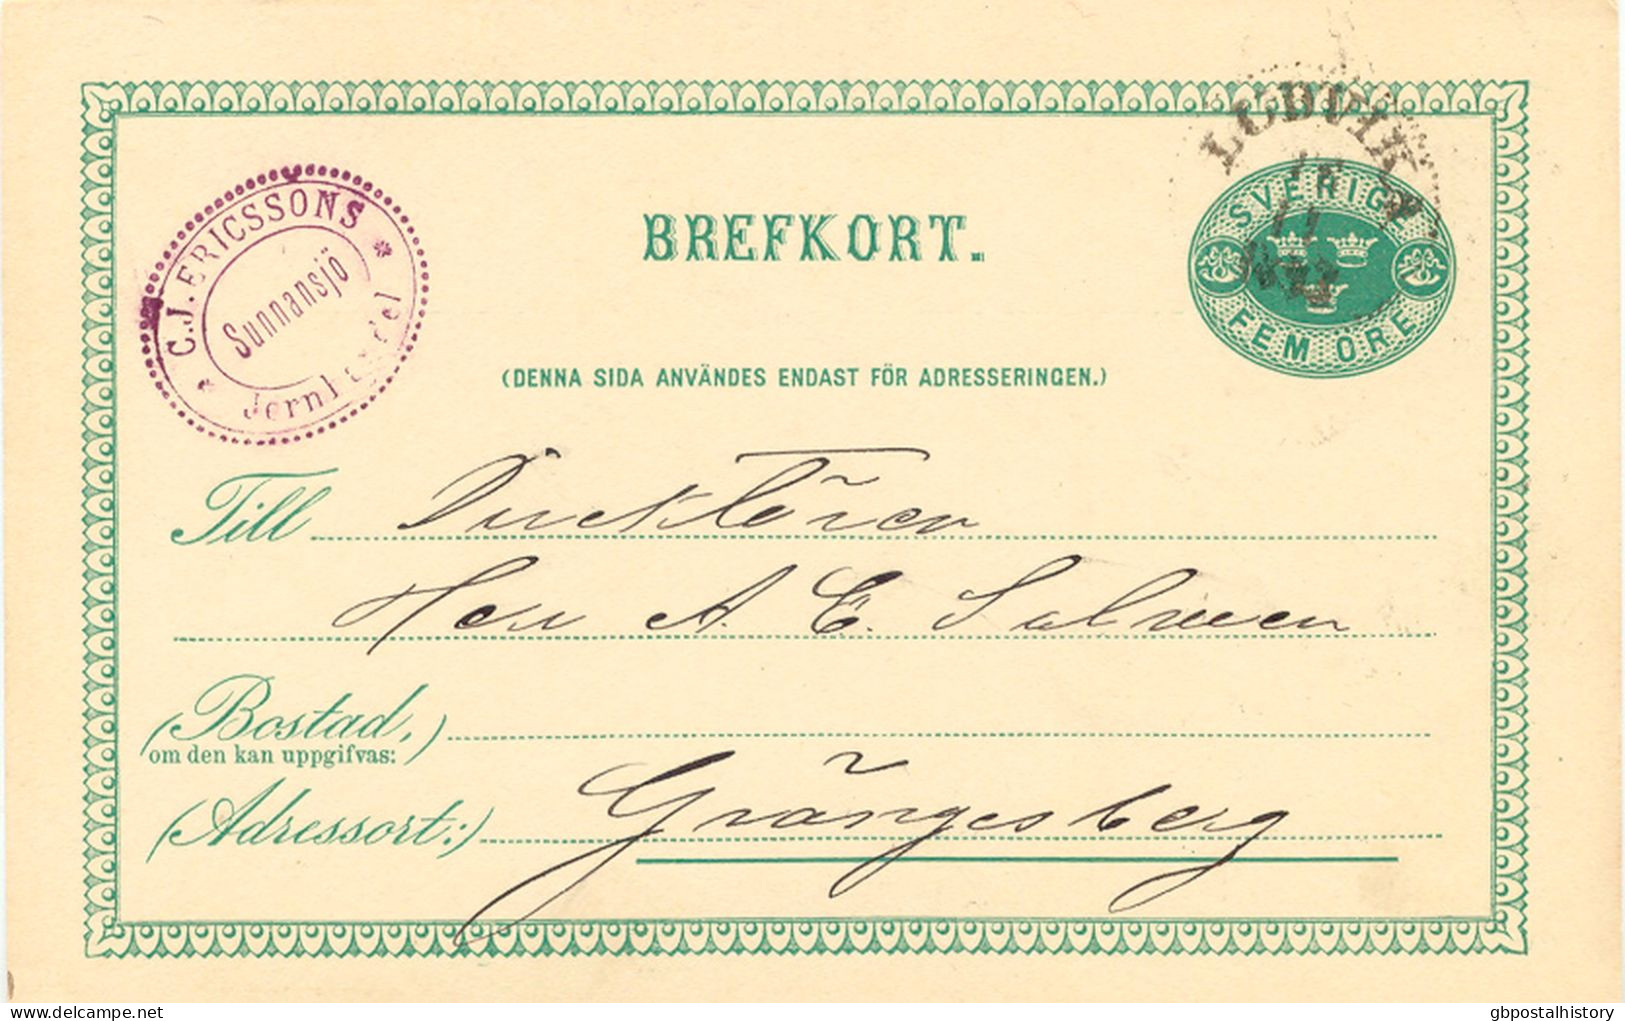 LUDVIKA
C.J. ERICSSONS
Sunnansjö
Jernhandel
BREFKORT.
SVERIGE
FEM ÖRE
(DENNA SIDA ANVÄNDES ENDAST FÖR ADRESSERINGEN.)
Till Direktören
Herr A. E. Salwén
(Bostad,)
om den kan uppgifvas:
(Adressort:) Grängesberg
gbpostalhistory